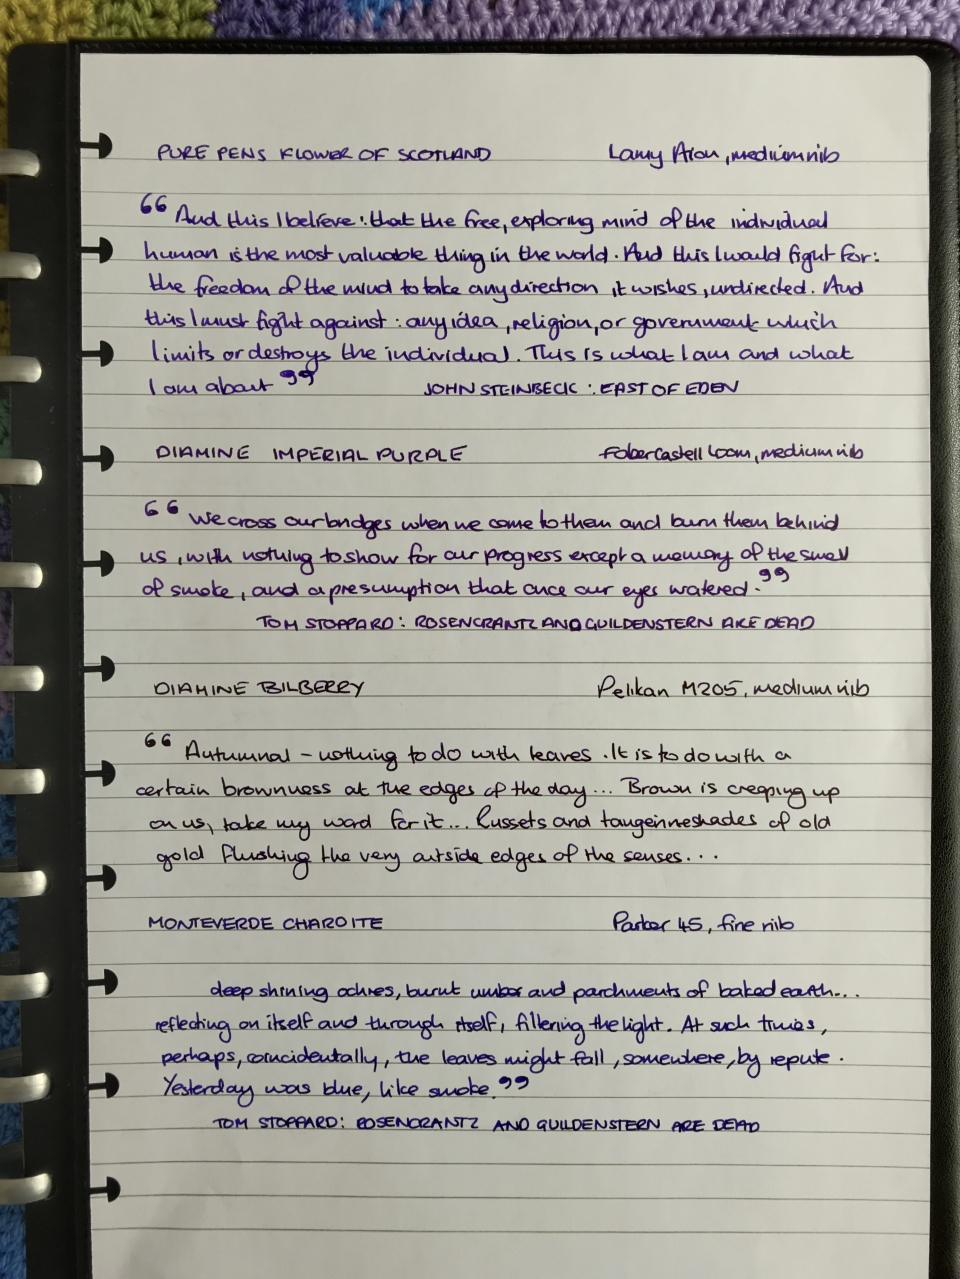 PURE PENS FLOWER OF SCOTLAND Lamy Aion, medium nib
“And this I believe: that the free, exploring mind of the individual
human is the most valuable thing in the world. And this I would fight for:
the freedom of the mind to take any direction it wishes, undirected. And
this I must fight against: any idea, religion, or government which
limits or destroys the individual. This is what I am and what
I am about” JOHN STEINBECK: EAST OF EDEN
DIAMINE IMPERIAL PURPLE Faber Castell Loom, medium nib
“We cross our bridges when we come to them and burn them behind
us, with nothing to show for our progress except a memory of the smell
of smoke, and a presumption that once our eyes watered.”
TOM STOPPARD: ROSENCRANTZ AND GUILDENSTERN ARE DEAD
DIAMINE BILBERRY Pelikan M205, medium nib
“Autumnal – nothing to do with leaves. It is to do with a
certain brownness at the edges of the day... Brown is creeping up
on us, take my word for it... Russets and tangerine shades of old
gold flushing the very outside edges of the senses...
MONTEVERDE CHAROITE Parker 45, fine nib
deep shining ochres, burnt umber and parchments of baked earth...
reflecting on itself and through itself, filtering the light. At such times,
perhaps, coincidentally, the leaves might fall, somewhere, by repute.
Yesterday was blue, like smoke.”
TOM STOPPARD: ROSENCRANTZ AND GUILDENSTERN ARE DEAD